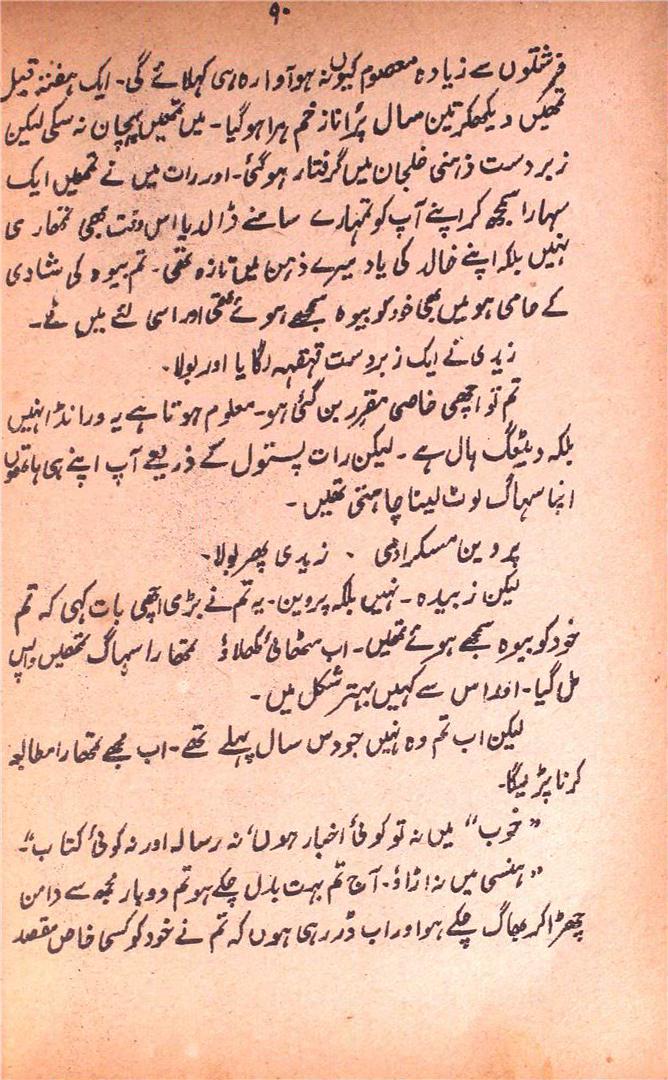 ۹۰
فرشتوں سے زیادہ معصوم کیوں نہ ہو آوارہ ہی کہلائے گی۔ ایک ہفتہ قبل
تمھیں دیکھکر تین سال پُرانا زخم ہرا ہوگیا۔ میں تمھیں پہچان نہ سکی لیکن
زبردست ذہنی خلجان میں گرفتار ہو گئی۔ اور رات میں نے تمھیں ایک
سہارا سمجھ کر اپنے آپ کو تمہارے سامنے ڈالدیا اس وقت بھی تمھاری
نہیں بلکہ اپنے خالد کی یاد میرے ذہن میں تازہ تھی۔ تم بیوہ کی شادی
کے حامی ہو میں بھی خود کو بیوہ سمجھے ہوئے تھی اور اسی لئے میں نے۔
زیدی نے ایک زبردست قہقہہ لگایا اور بولا۔
تم تو اچھی خاصی مقرر بن گئی ہو۔ معلوم ہوتا ہے یہ ورانڈا نہیں
بلکہ ویٹنگ ہال ہے۔ لیکن رات پستول کے ذریعے آپ اپنے ہی ہاتھوں
اپنا سہاگ لوٹ لینا چاہتی تھیں۔
پروین مسکرادی۔ زیدی پھر بولا۔
لیکن زبیدہ۔ نہیں بلکہ پروین۔ یہ تم نے بڑی اچھی بات کہی کہ تم
خود کو بیوہ سمجھے ہوئے تھیں۔ اب مٹھائی کھلاؤ تمھارا سہاگ تمھیں واپس
مل گیا۔ اور اس سے کہیں بہتر شکل میں۔
لیکن اب تم وہ نہیں جو دس سال پہلے تھے۔ اب مجھے تمھارا مطالعہ
کرنا پڑیگا۔
"خوب" میں نہ تو کوئی اخبار ہوں، نہ رسالہ اور نہ کوئی کتاب"۔
"ہنسی میں نہ اڑاؤ۔ آج تم بہت بدل چکے ہو تم دوبار مجھ سے دامن
چھڑا کر بھاگ چکے ہو اور اب ڈر رہی ہوں کہ تم نے خود کو کسی خاص مقصد